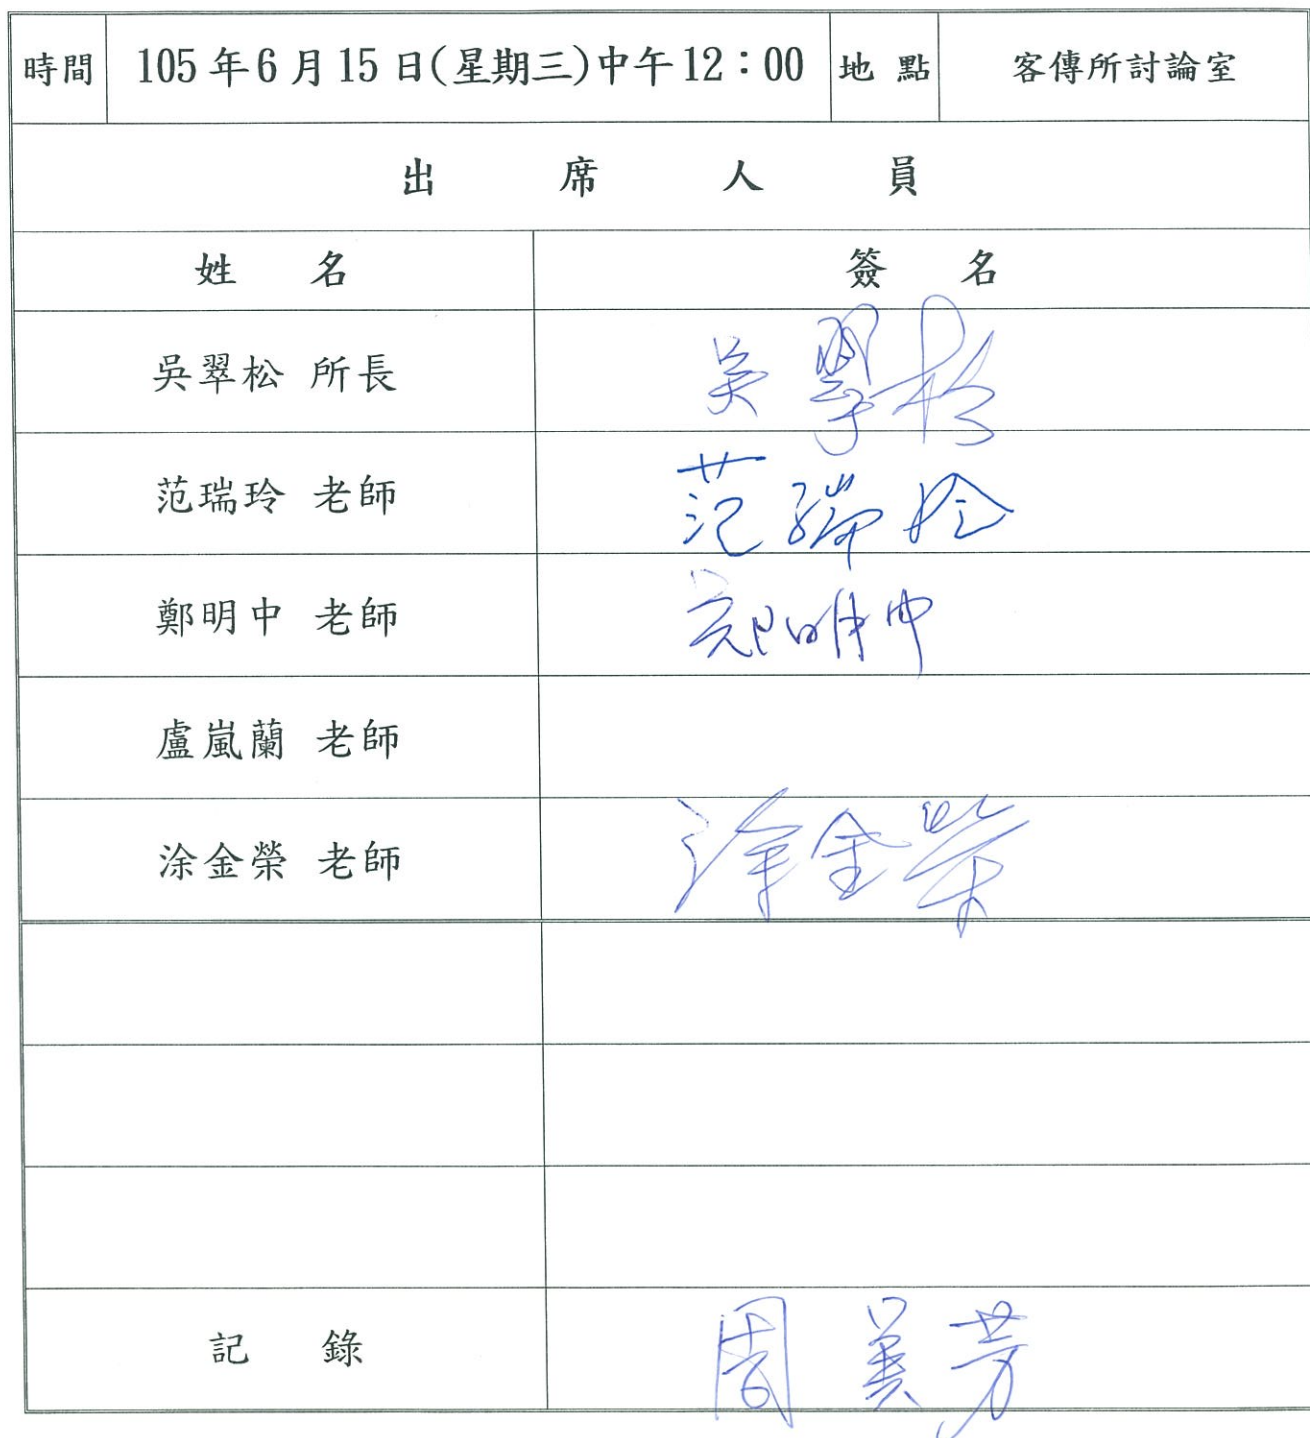 時間 105年6月15日(星期三)中午12：00 地 點 客傳所討論室
出 席 人 員
姓 名 簽 名
吳翠松 所長 吳翠松
范瑞玲 老師 范瑞玲
鄭明中 老師 鄭明中
盧嵐蘭 老師
涂金榮 老師 涂金榮
記 錄 周美芳